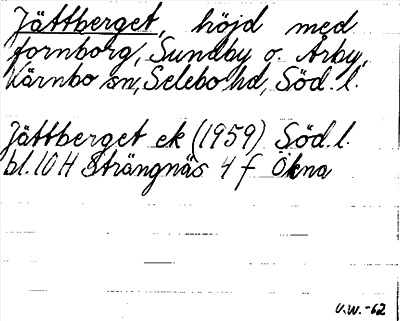 Jättberget, höjd med
fornborg, Sundby o. Årby,
Kärnbo sn, Selebo hd, Söd. l.
Jättberget ek (1959) Söd. l.
bl. 10 H Strängnäs 4 f Ökna
U.W.-62